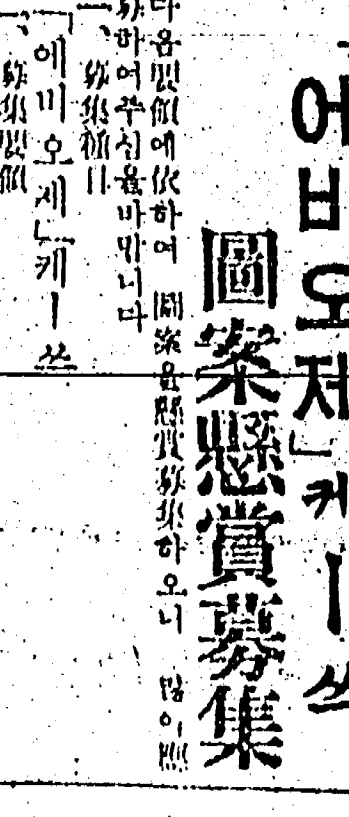 에비오제」케ー쓰
圖案懸賞募集
다음規定에依하여 圖案을懸賞募集하오니 많이應
募하여주심을바랍니다
一、募集種目
「에비오제」케ー쓰
一、募集規定